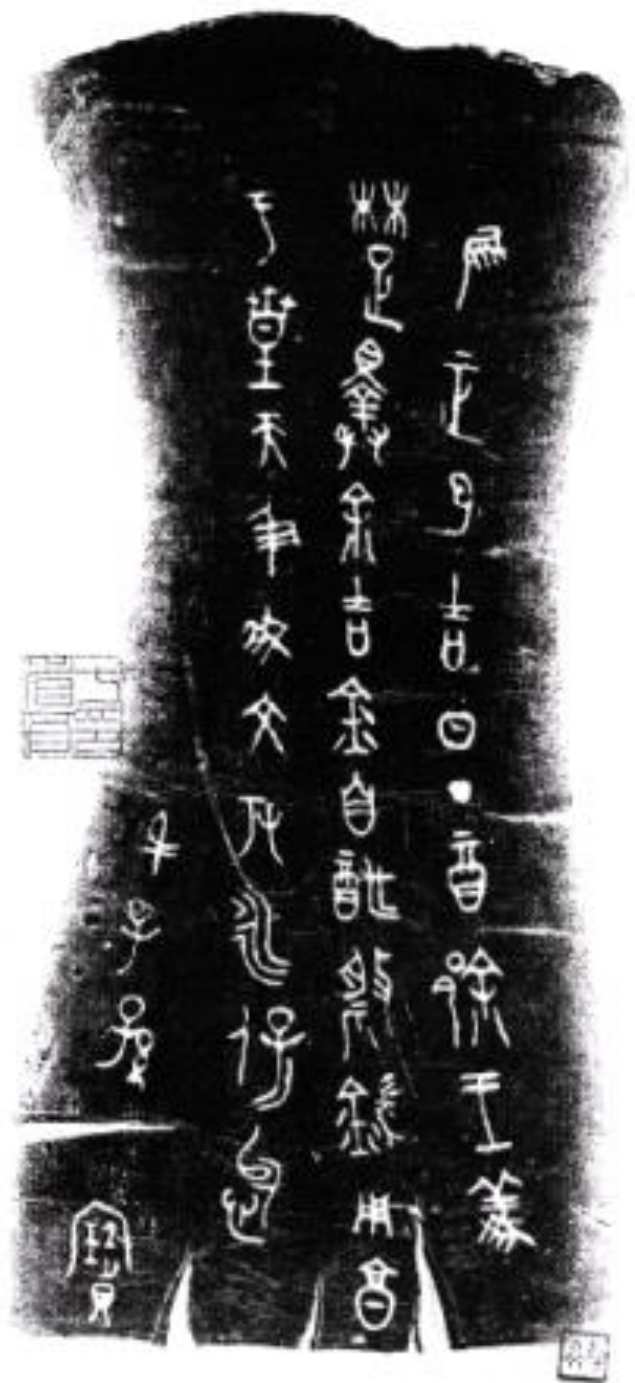 隹正月吉日丁酉徐王義
楚擇余吉金自酢祭鍴用享
于皇天及我文考永保怠
身子孫寶